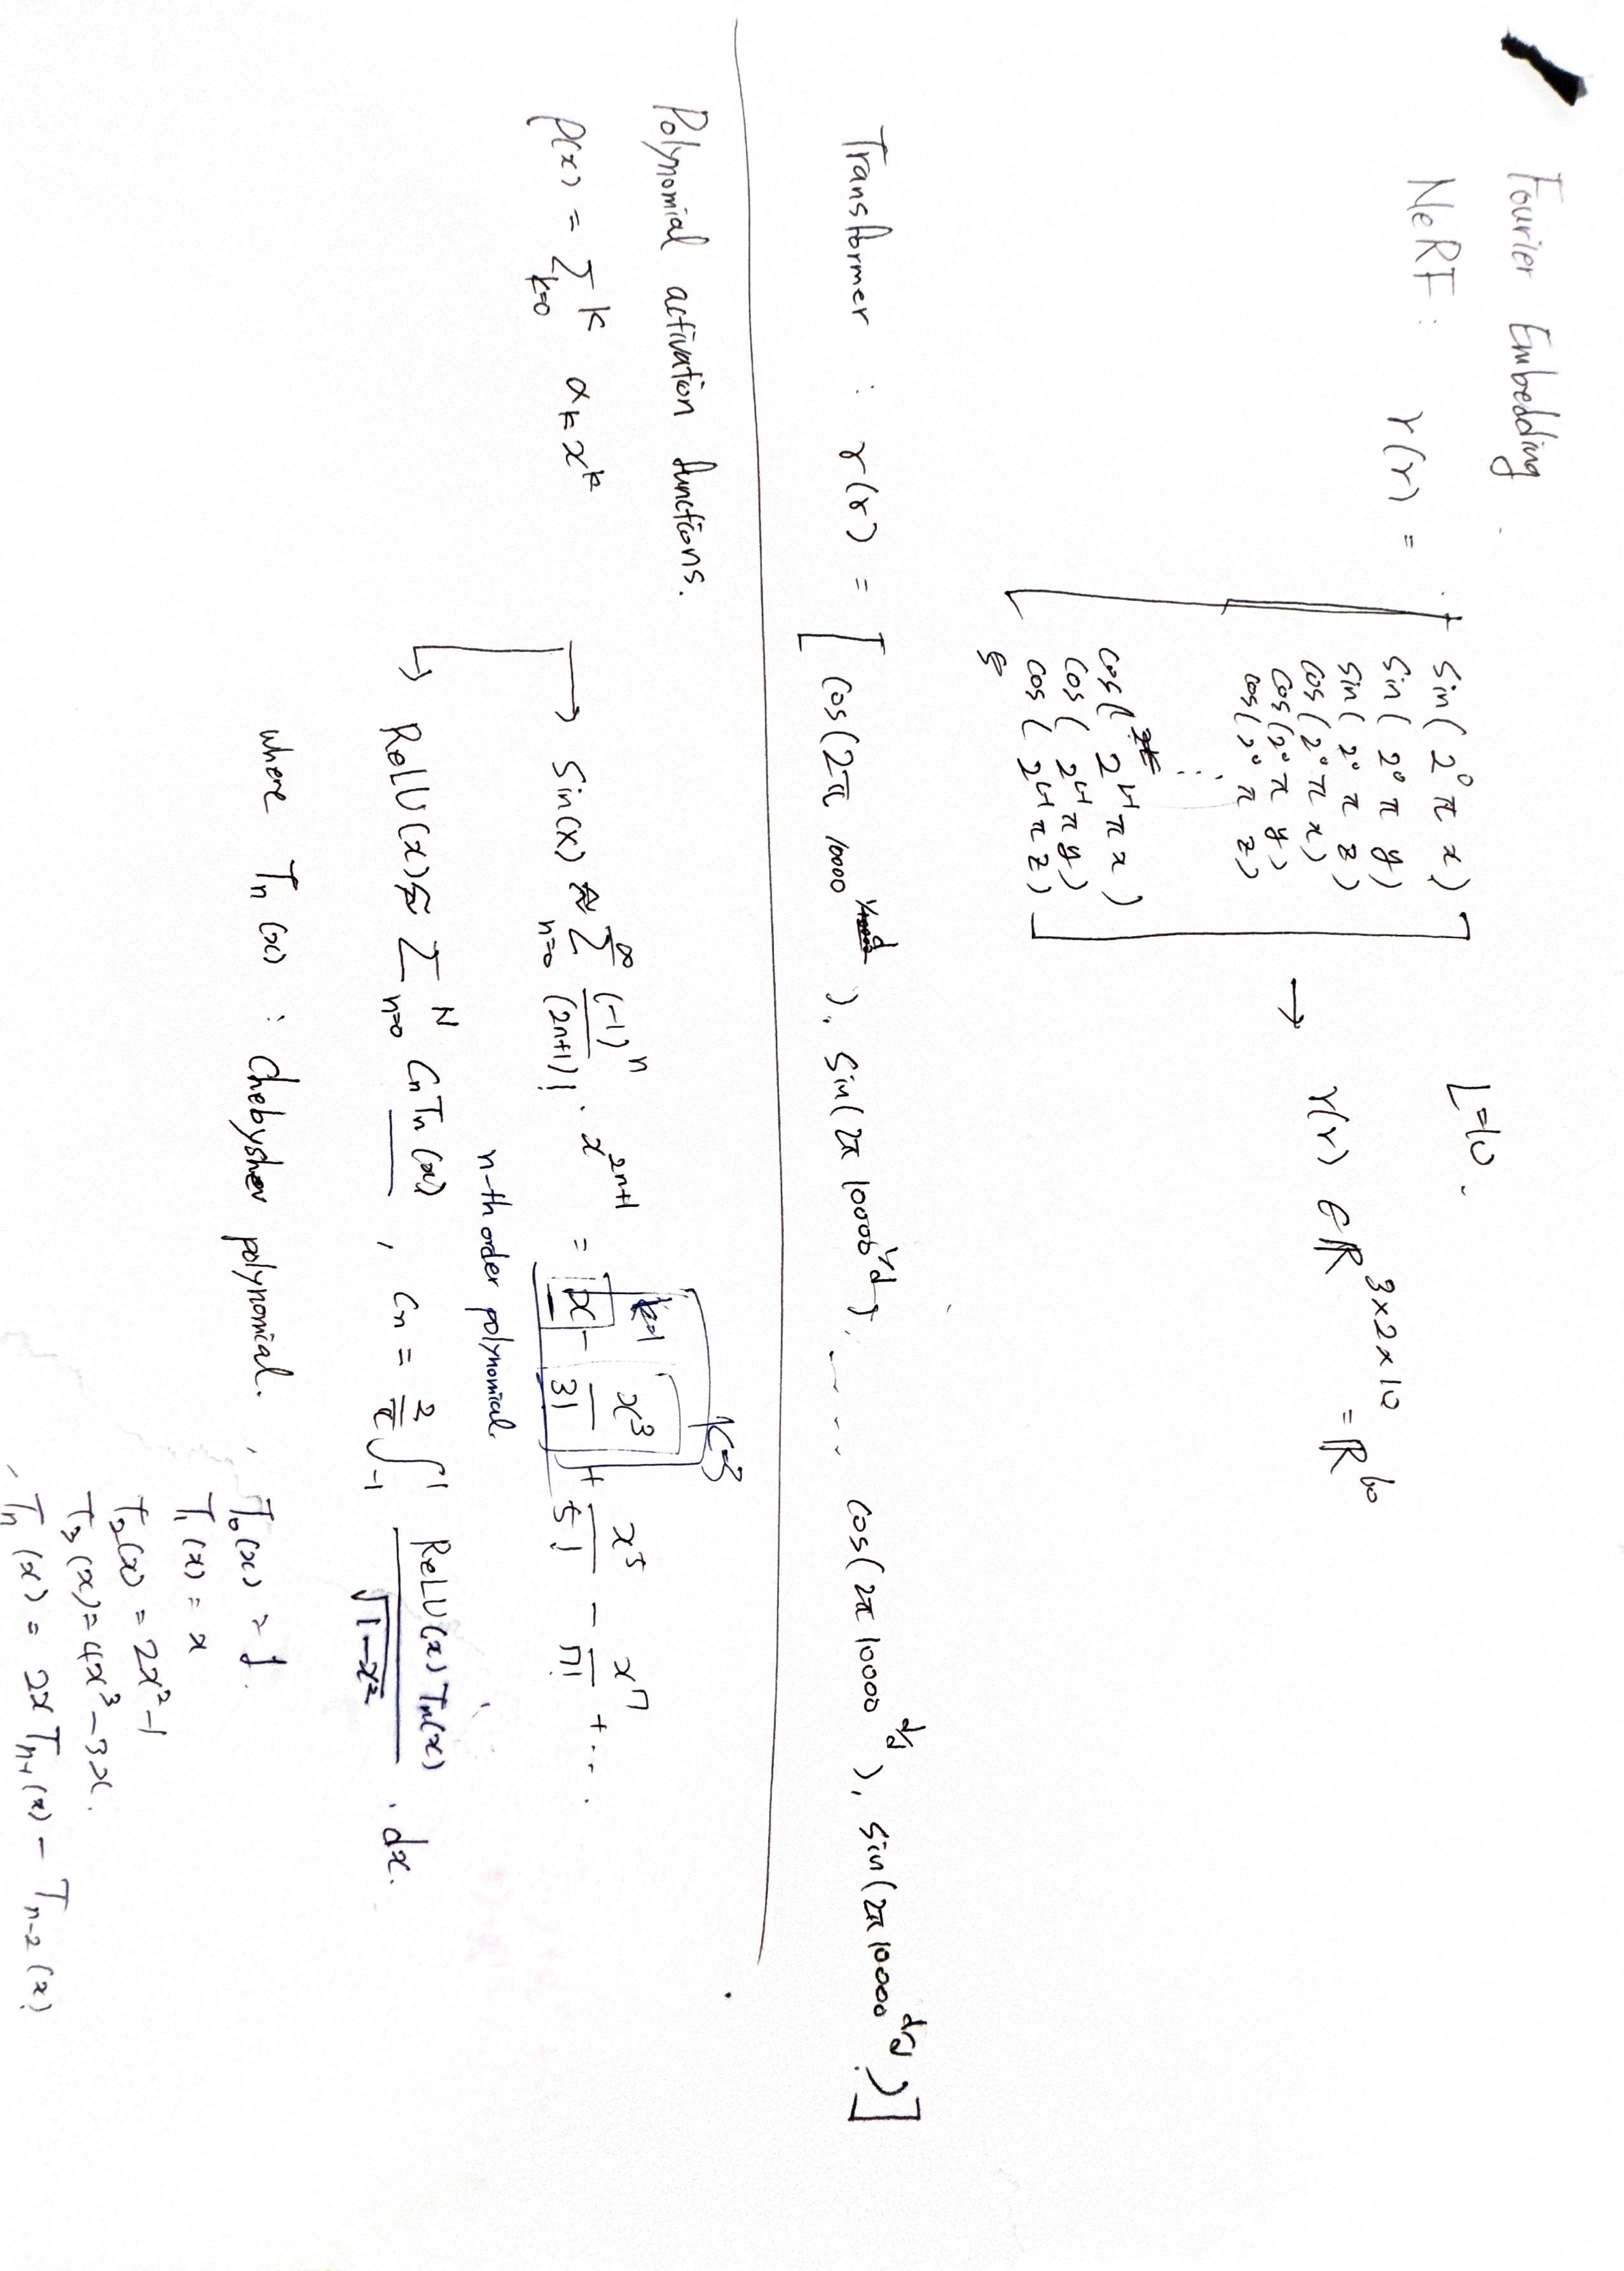 Fourier Embedding
NeRF : γ(r) =
sin(2⁰πx)
sin(2⁰πy)
sin(2⁰πz)
cos(2⁰πx)
cos(2⁰πy)
cos(2⁰πz)
⋮
cos(2ᴸ⁻¹πx)
cos(2ᴸ⁻¹πy)
cos(2ᴸ⁻¹πz)
L=10.
→ γ(r) ∈ ℝ^{3×2×10} = ℝ^{60}
Transformer : γ(r) = [cos(2π 10000^{1/d}), sin(2π 10000^{1/d}), ..... cos(2π 10000^{d/d}), sin(2π 10000^{d/d})]
Polynomial activation functions.
p(x) = Σ_{k=0}^{k} α_k x^k
→ sin(x) ≈ Σ_{n=0}^{∞} (-1)^n/(2n+1)! · x^{2n+1} = x - x³/3! + x⁵/5! - x⁷/7! + ...
k=1
K=3
n-th order polynomial.
↳ ReLU(x) ≈ Σ_{n=0}^{N} C_n T_n(x), C_n = 2/π ∫_{-1}^{1} ReLU(x) T_n(x)/√(1-x²) · dx.
where T_n(x) : Chebyshev polynomial.
, T₀(x) = 1.
T₁(x) = x
T₂(x) = 2x²-1
T₃(x) = 4x³-3x.
, T_n(x) = 2x T_{n-1}(x) - T_{n-2}(x)